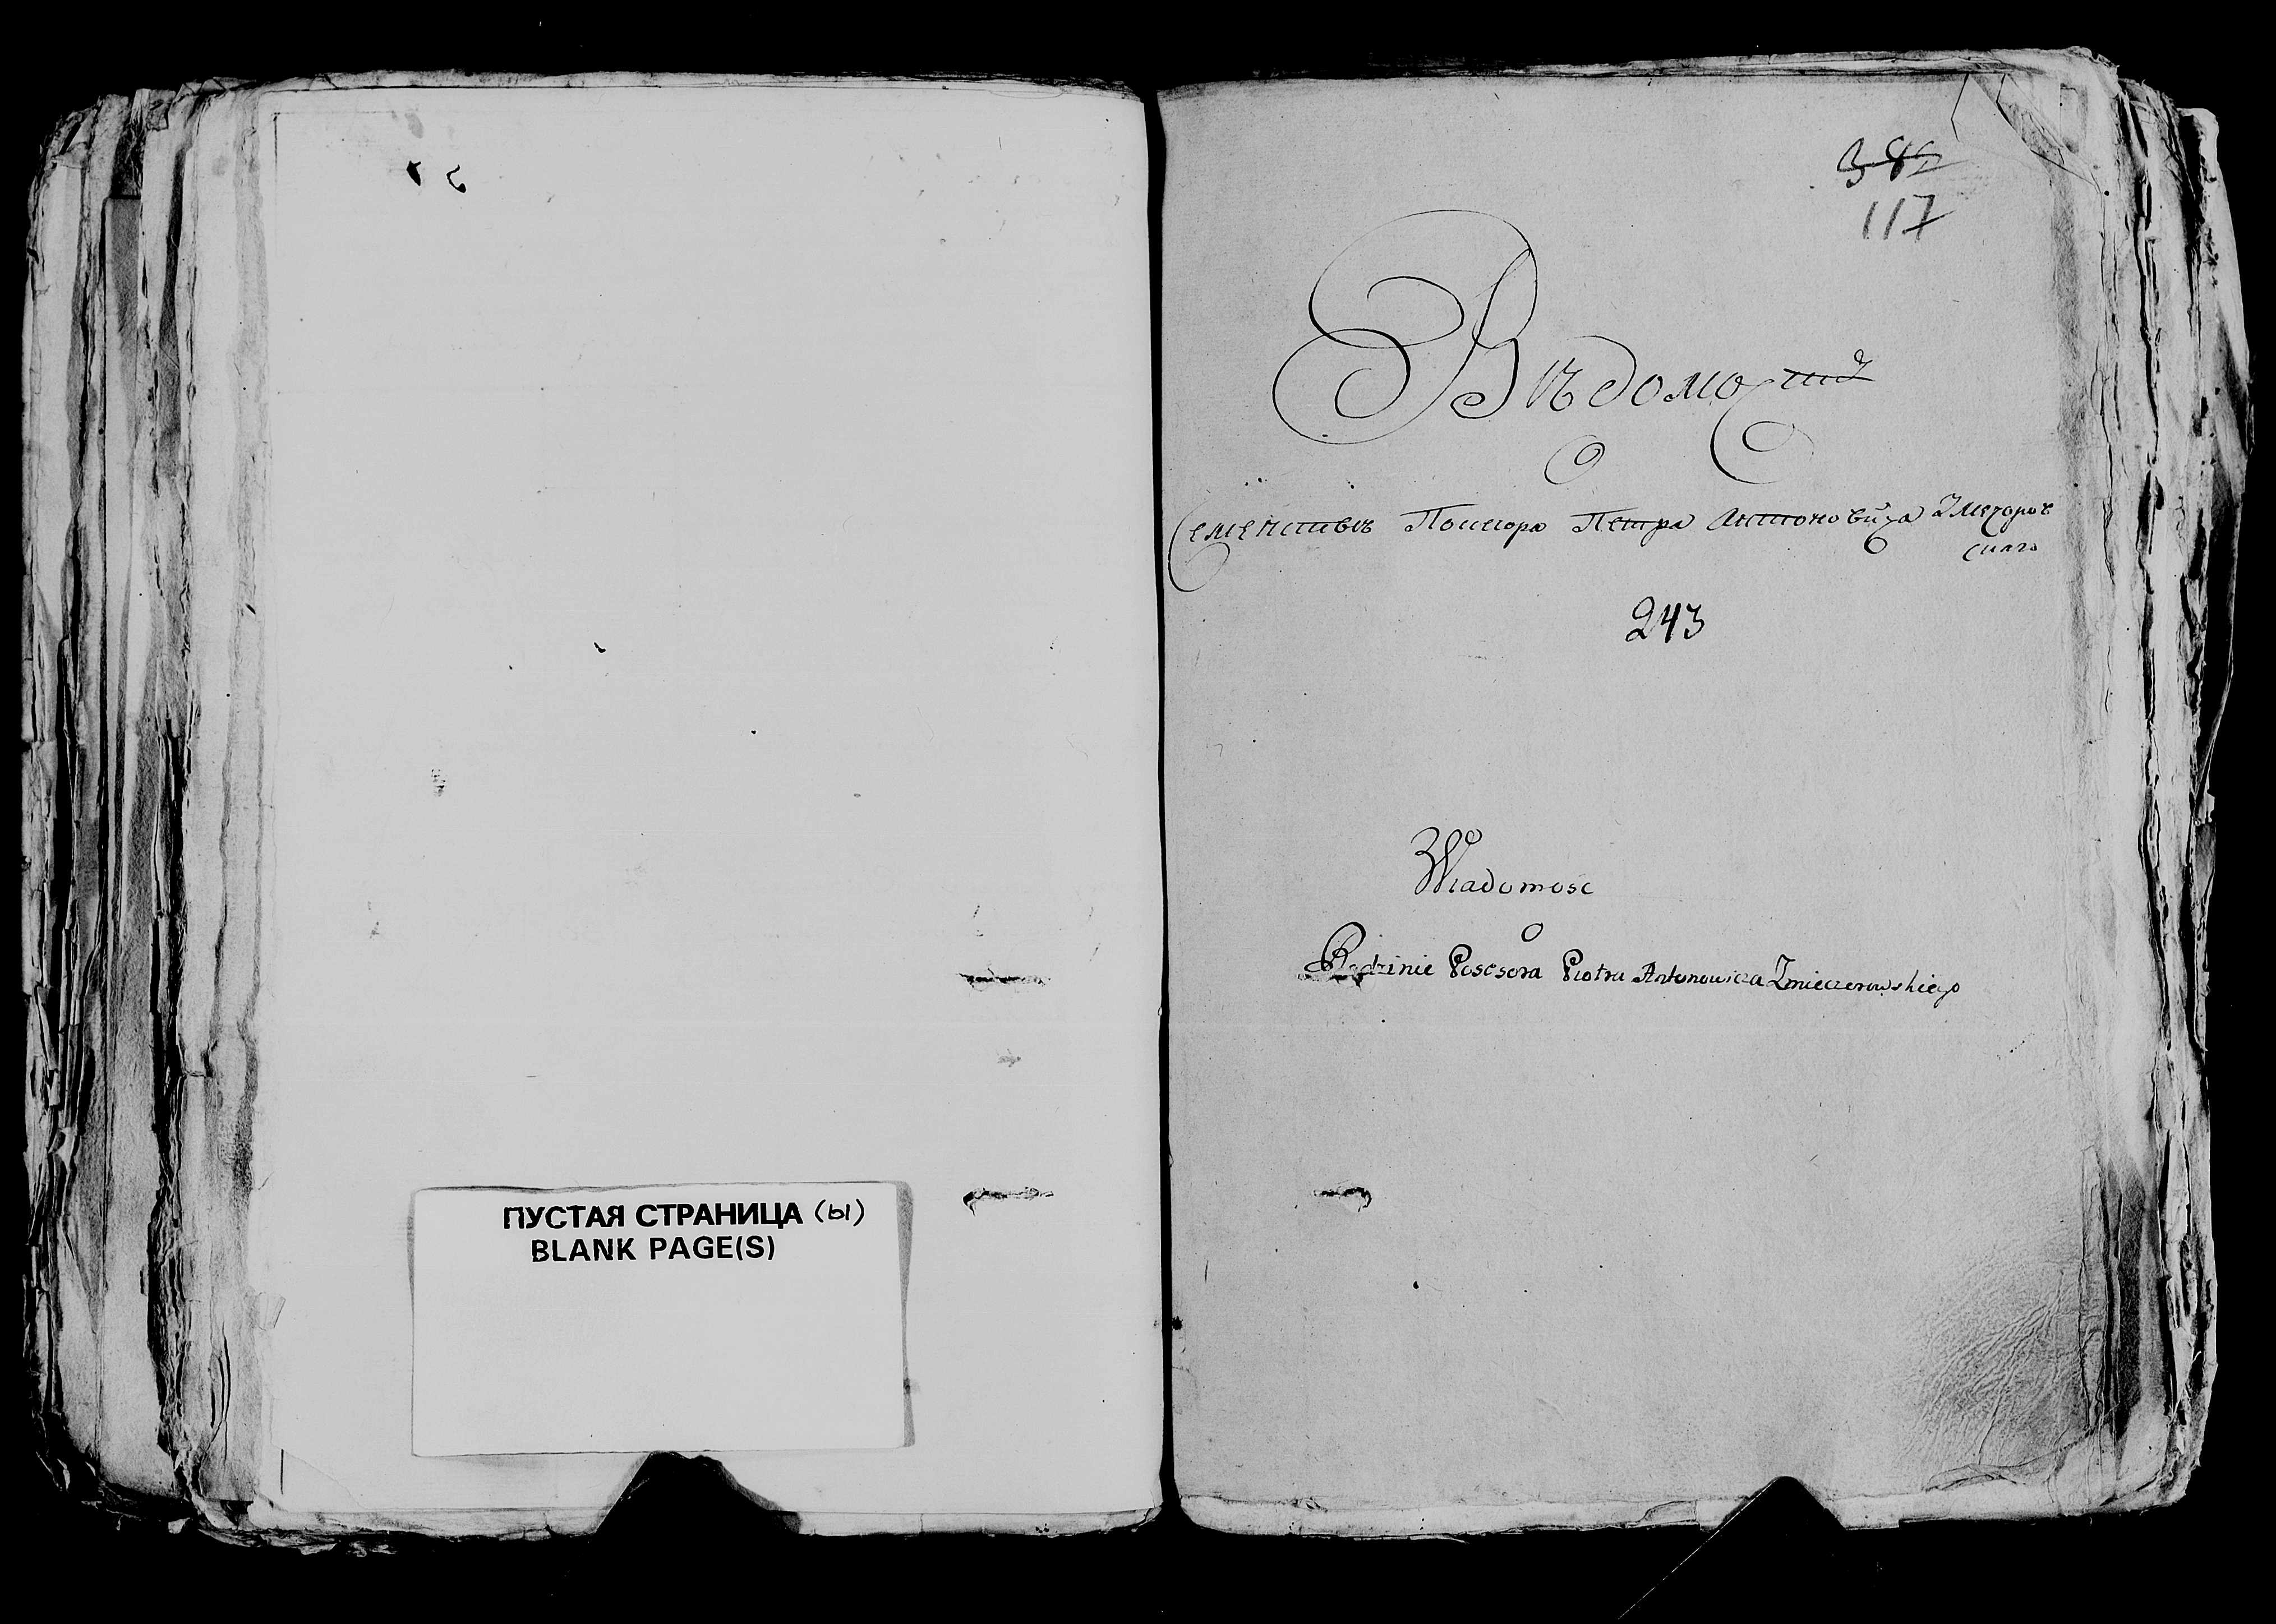 ПУСТАЯ СТРАНИЦА (Ы)
BLANK PAGE(S)
117
Вѣдомость
О
Семействѣ Петра Антоновича
скаго
243
Wiadomosc
O
Rodzinie Posesora Piotra Antonowicza Zmieczerowskiego